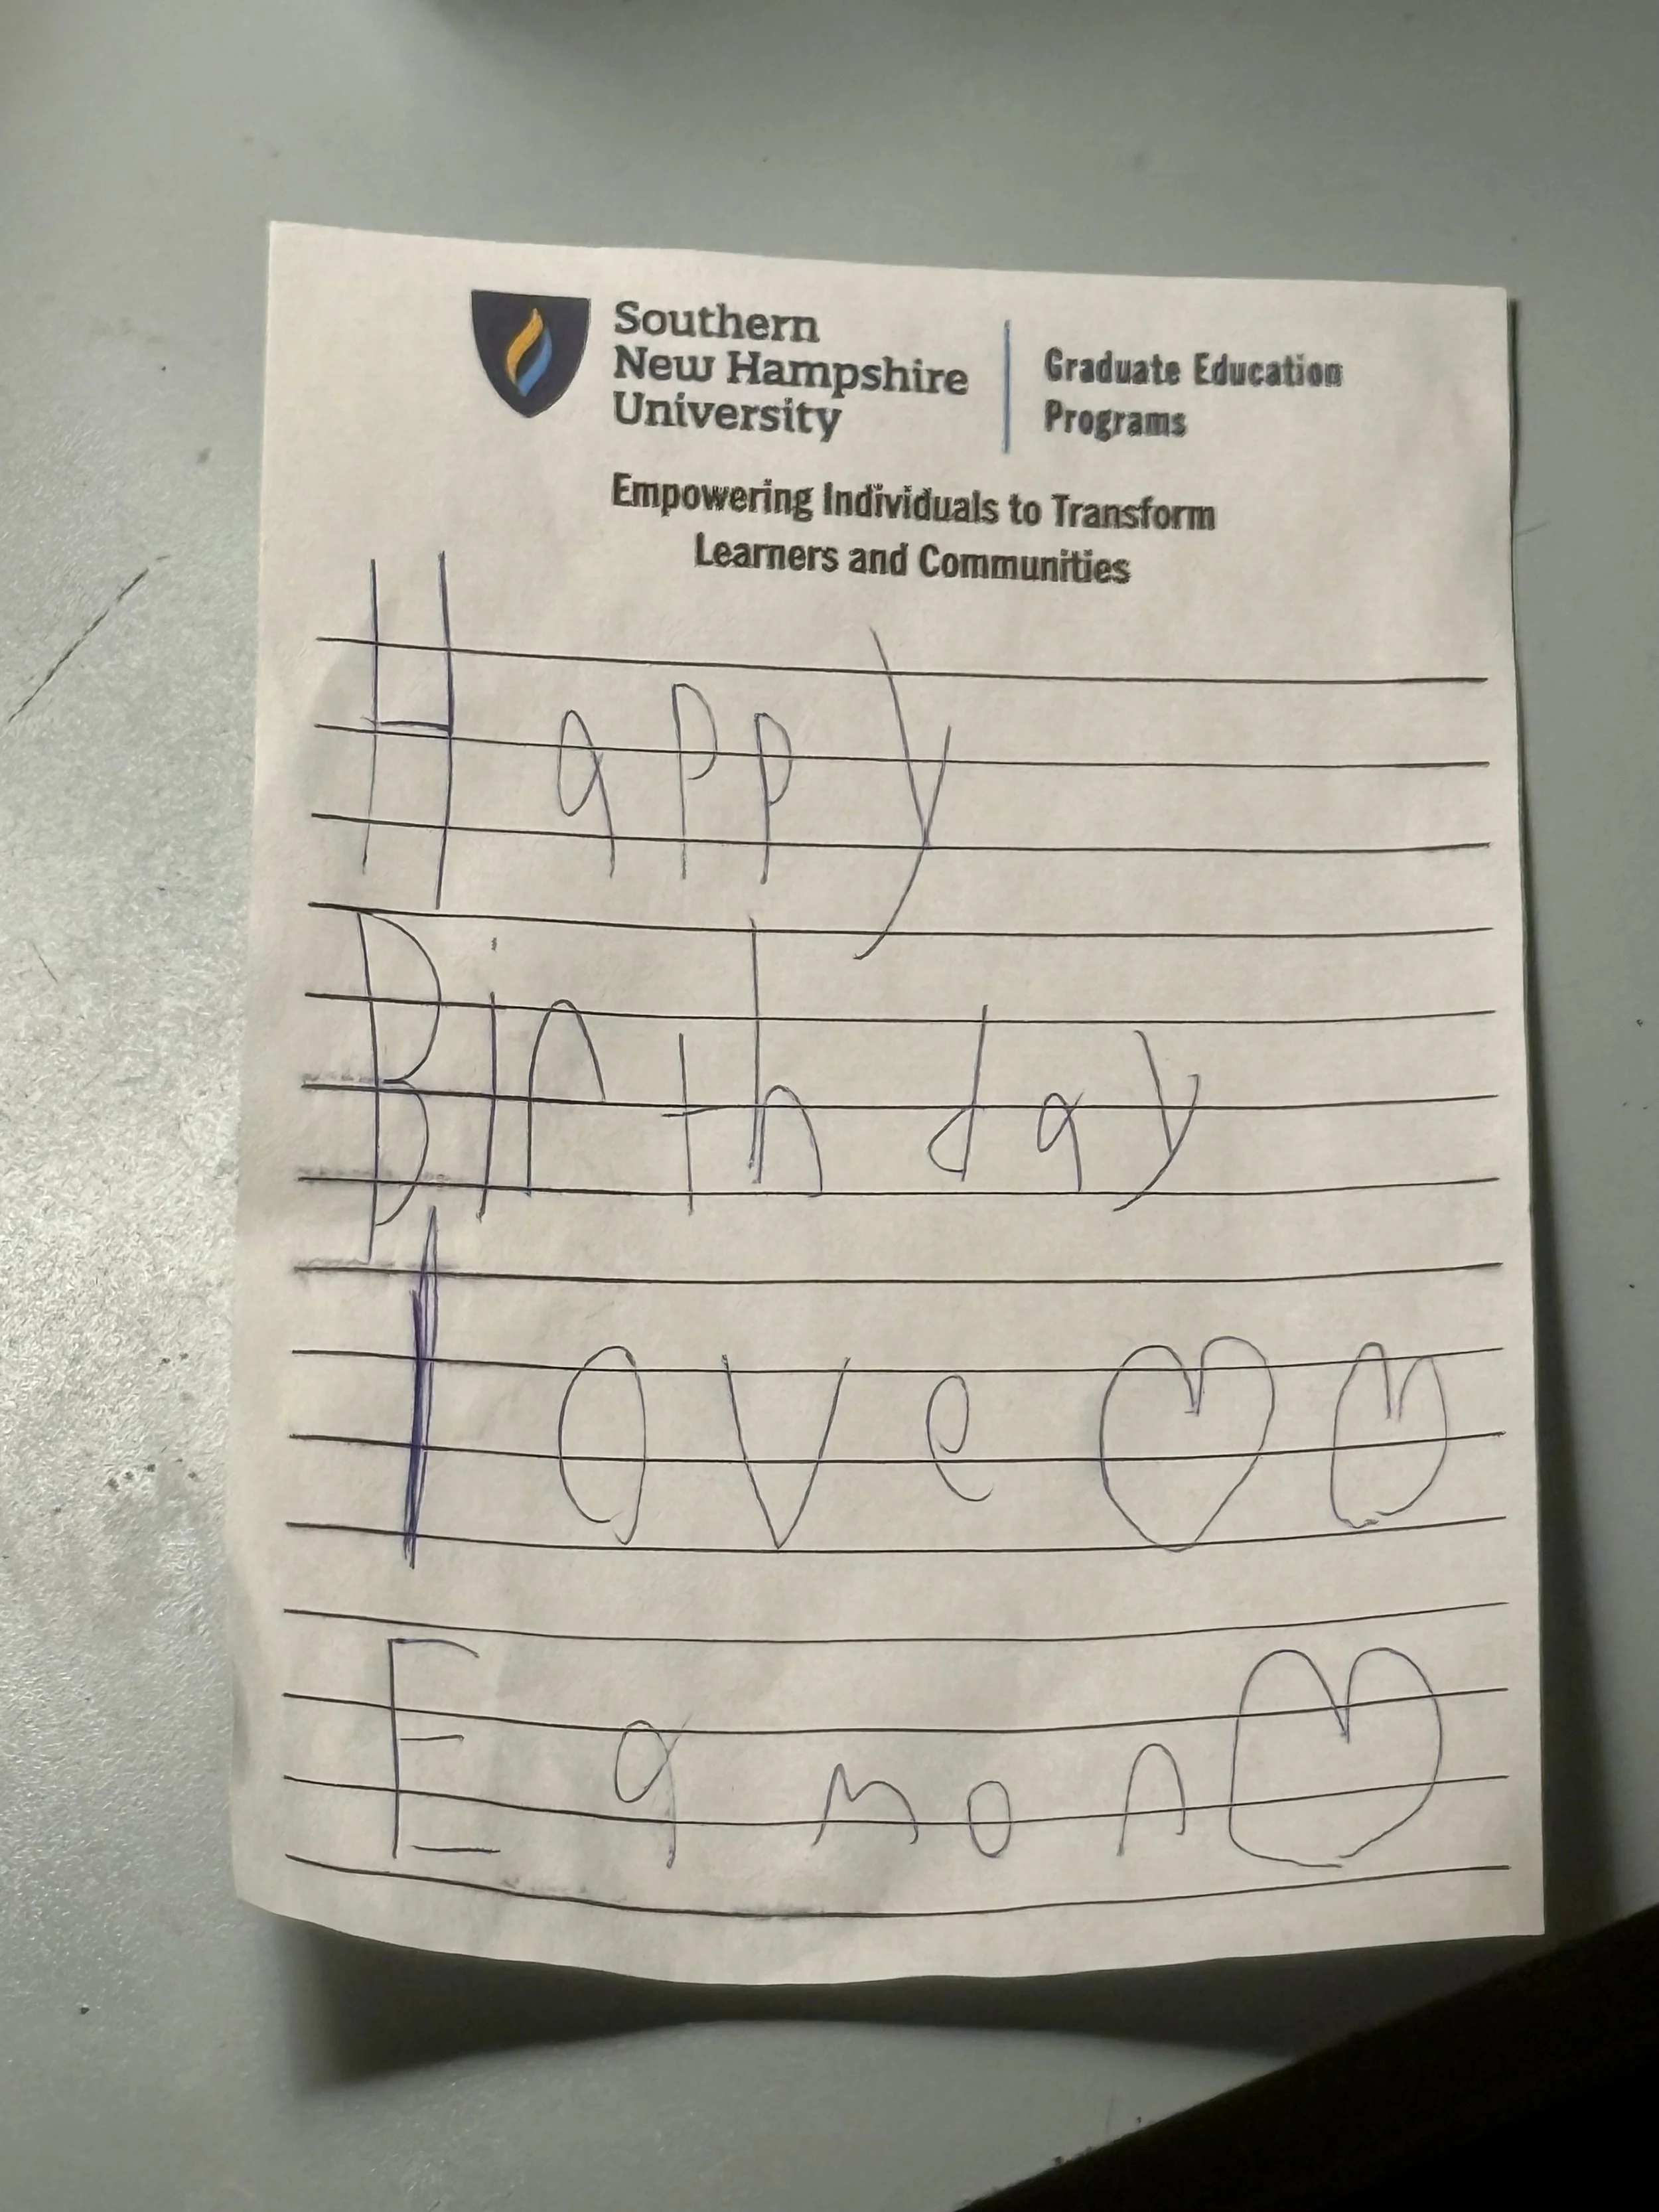 Southern
New Hampshire
University
Graduate Education
Programs
Empowering Individuals to Transform
Learners and Communities
Happy
Birthday
love
Eamon